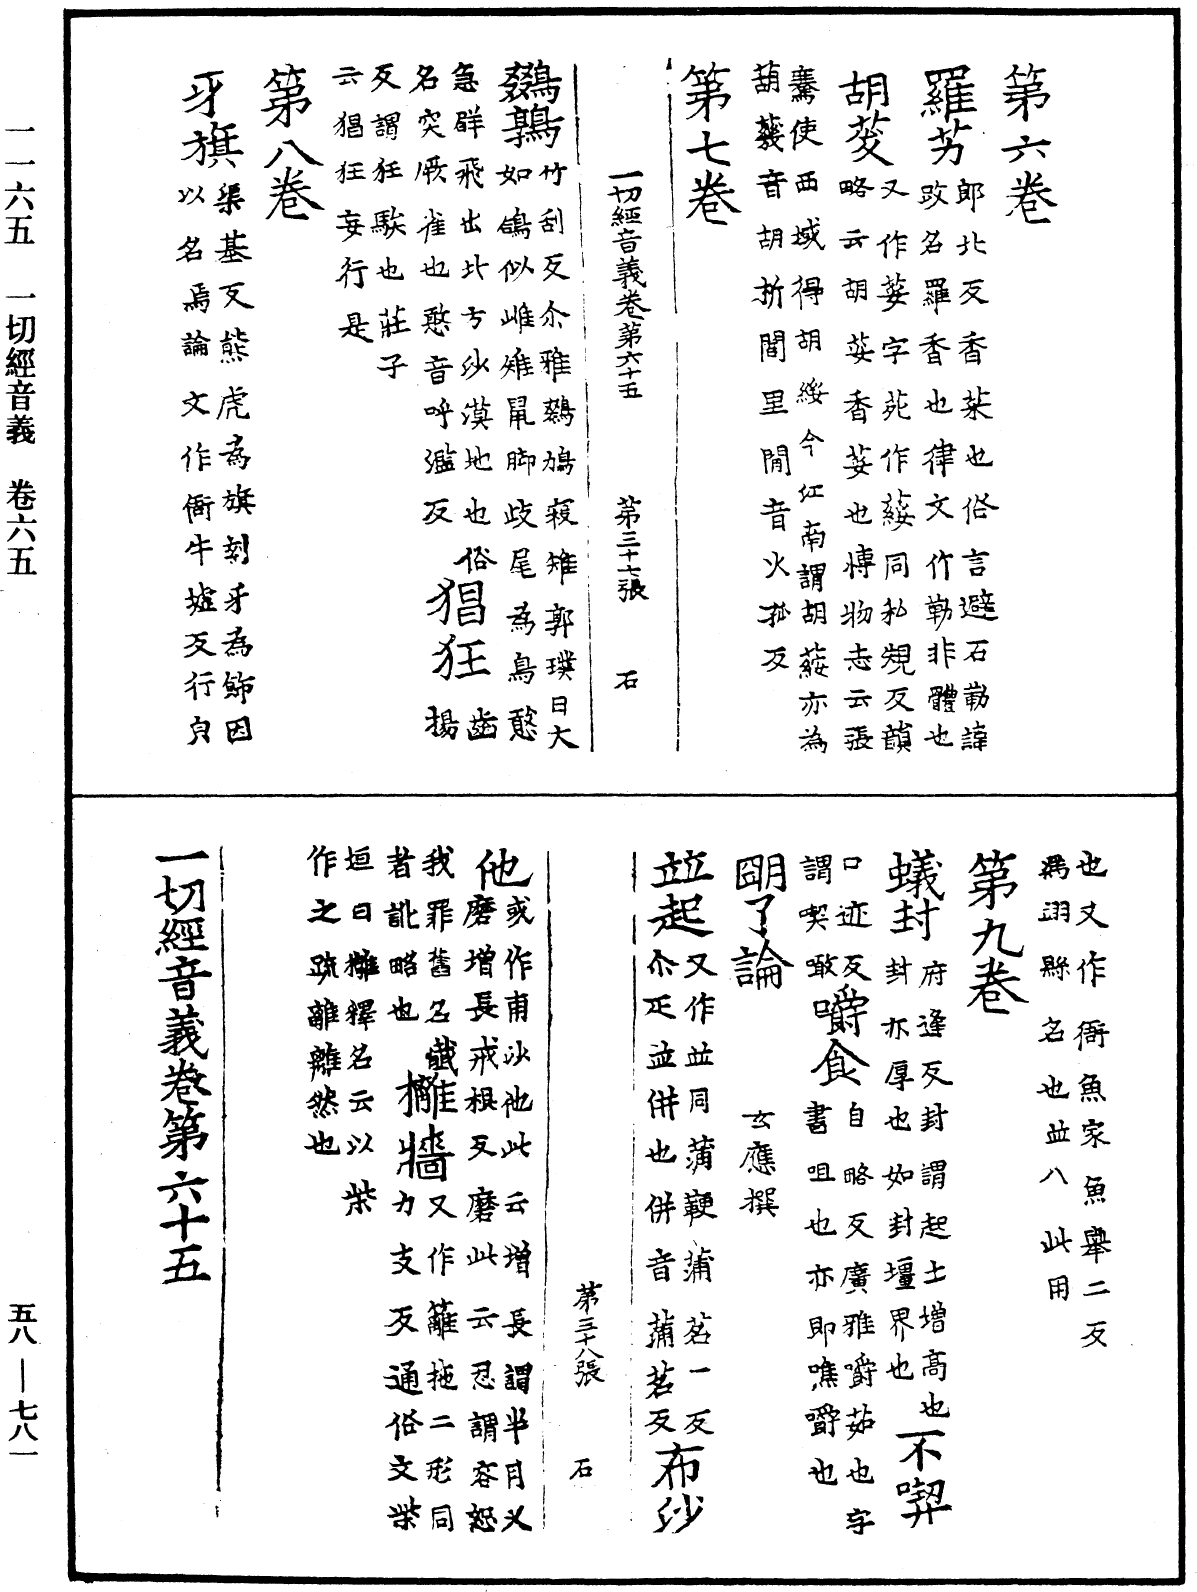 第六卷
羅艻郎北反香菜也俗言避石勒諱
改名羅香也律文作勒非體也
胡荾又作荽字苑作䓈同私規反韻
略云胡荽香荽也博物志云張
騫使西域得胡綏今江南謂胡䕑亦為
葫䕑音胡析閭里間音火孤反
第七卷
一切經音義卷第六十五 第三十七張 石
鵽鶉竹刮反尒雅鵽鳩寇雉郭璞曰大
如鴿似雌雉鼠脚歧尾為鳥憨
急群飛出北方沙漠地也俗
名突厥雀也憨音呼濫反
猖狂齒揚
反謂狂騃也莊子
云猖狂妄行是
第八卷
牙旗渠基反熊虎為旗刻牙為飾因
以名焉論文作衙牛墟反行皃
也又作衙魚家魚舉二反
馮翊縣名也並八此用
第九卷
蟻封府逢反封謂起土增高也
封亦厚也如封壃界也
不喫口迹反
謂喫噉
嚼食自略反廣雅嚼茹也字
書咀也亦即噍嚼也
明了論 玄應撰
竝起又作並同蒲鞕蒲茗二反
尒疋並併也併音蒲茗反
布沙
他或作甫沙他此云增長謂半月乂
磨增長戒根反磨此云忍謂容恕
我罪舊名懺
者訛略也
攡牆力支反通俗文柴
又作籬杝二形同
垣曰攡釋名云以柴
作之疏離離然也
第三十八張 石
一切經音義卷第六十五
一一六五 一切經音義 卷六五
五八—七八一